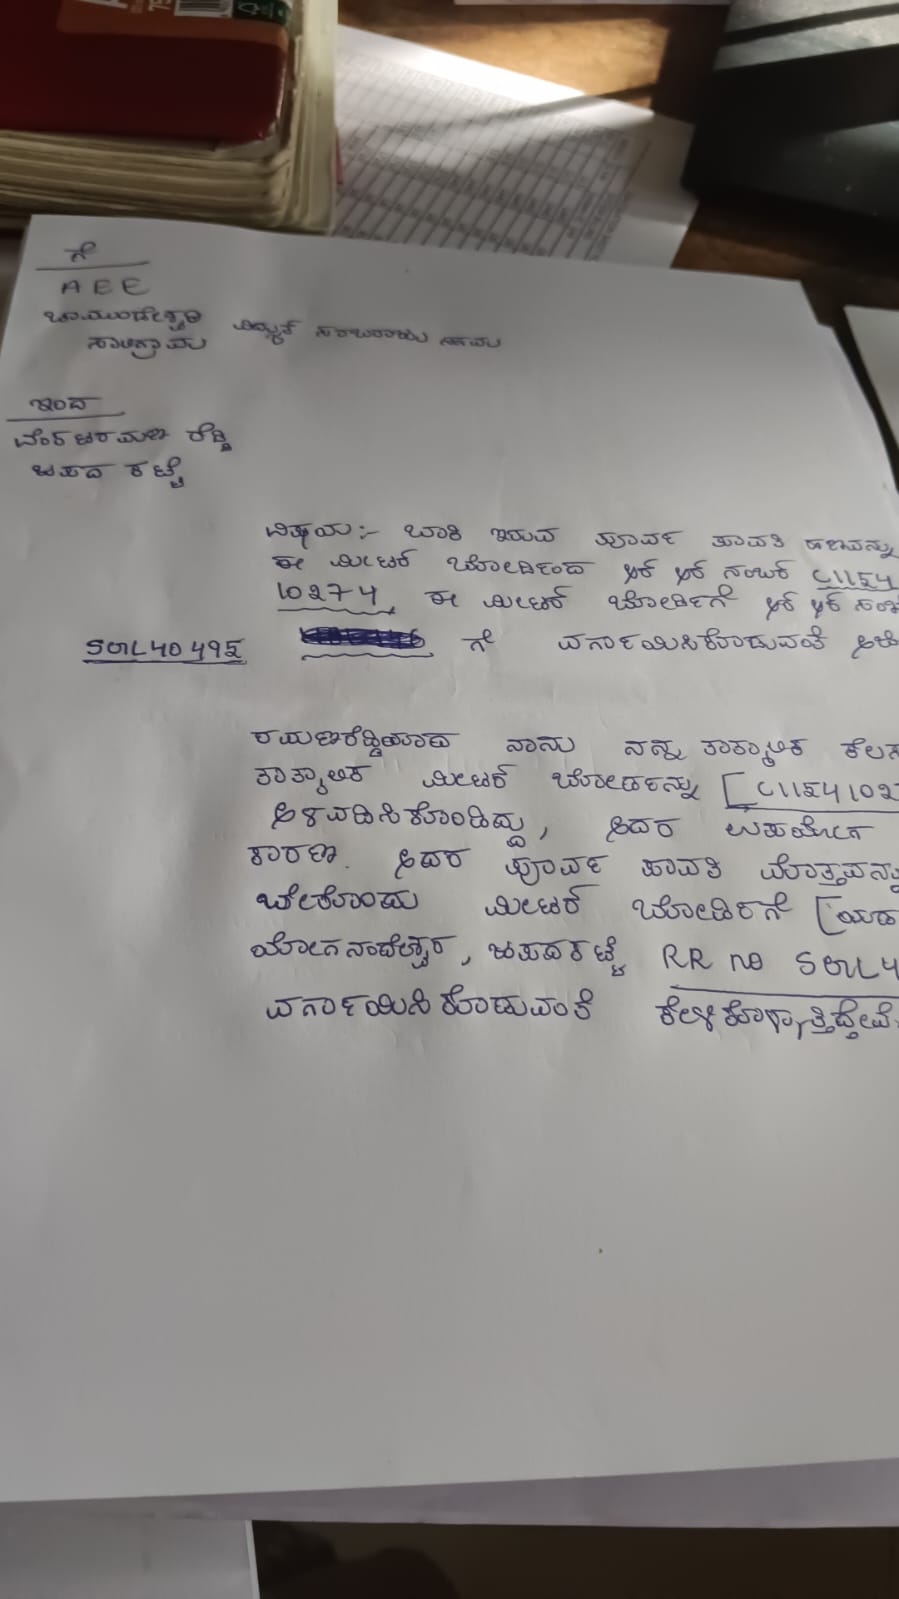 ಗೆ
AEE
ಚಾಮುಂಡೇಶ್ವರಿ ವಿದ್ಯುತ್ ಸರಬರಾಜು ನಿಗಮ
ಸಾಲಿಗ್ರಾಮ
ಇಂದ
ವೆಂಕಟರಮಣ ರೆಡ್ಡಿ
ಜಪದ ಕಟ್ಟೆ
ವಿಷಯ:- ಬಾಕಿ ಇರುವ ಪೂರ್ವ ಪಾವತಿ ಹಣವನ್ನು
ಈ ಮೀಟರ್ ಬೋರ್ಡಿಂದ ಆರ್ ಆರ್ ನಂಬರ್ C1154
10274, ಈ ಮೀಟರ್ ಬೋರ್ಡಿಗೆ ಆರ್ ಆರ್
ಗೆ ವರ್ಗಾಯಿಸಿಕೊಡುವಂತೆ
ರಮಣರೆಡ್ಡಿಯಾದ ನಾನು ನನ್ನ ತಾತ್ಕಾಲಿಕ ಕೆಲಸ
ತಾತ್ಕಾಲಿಕ ಮೀಟರ್ ಬೋರ್ಡನ್ನು [C1154102
ಅಳವಡಿಸಿಕೊಂಡಿದ್ದು, ಅದರ ಉಪಯೋಗ
ಕಾರಣ. ಅದರ ಪೂರ್ವ ಪಾವತಿ ಮೊತ್ತವನ್ನು
ಬೇರೊಂದು ಮೀಟರ್ ಬೋರ್ಡಿಗೆ
ಯೋಗನಂದೇಶ್ವರ, ಜಪದಕಟ್ಟೆ RR no
ವರ್ಗಾಯಿಸಿಕೊಡುವಂತೆ ಕೇಳಿಕೊಳ್ಳುತ್ತಿದ್ದೇವೆ.